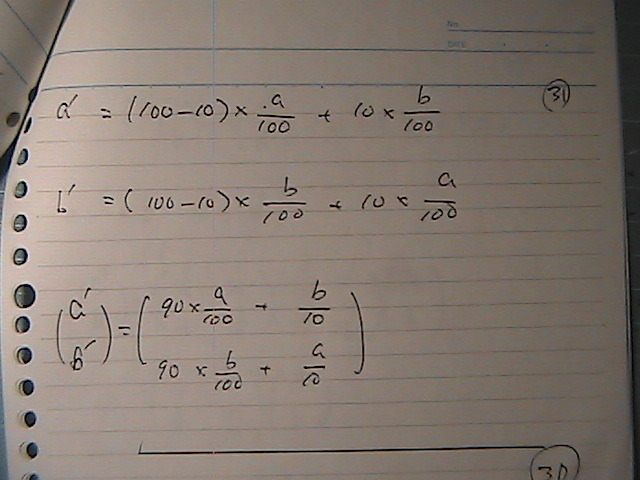 No.
DATE
a' = (100-10) × a/100 + 10 × b/100 (31)
b' = (100-10) × b/100 + 10 × a/100
(a' b') = (90 × a/100 + b/10
90 × b/100 + a/10)
(31)